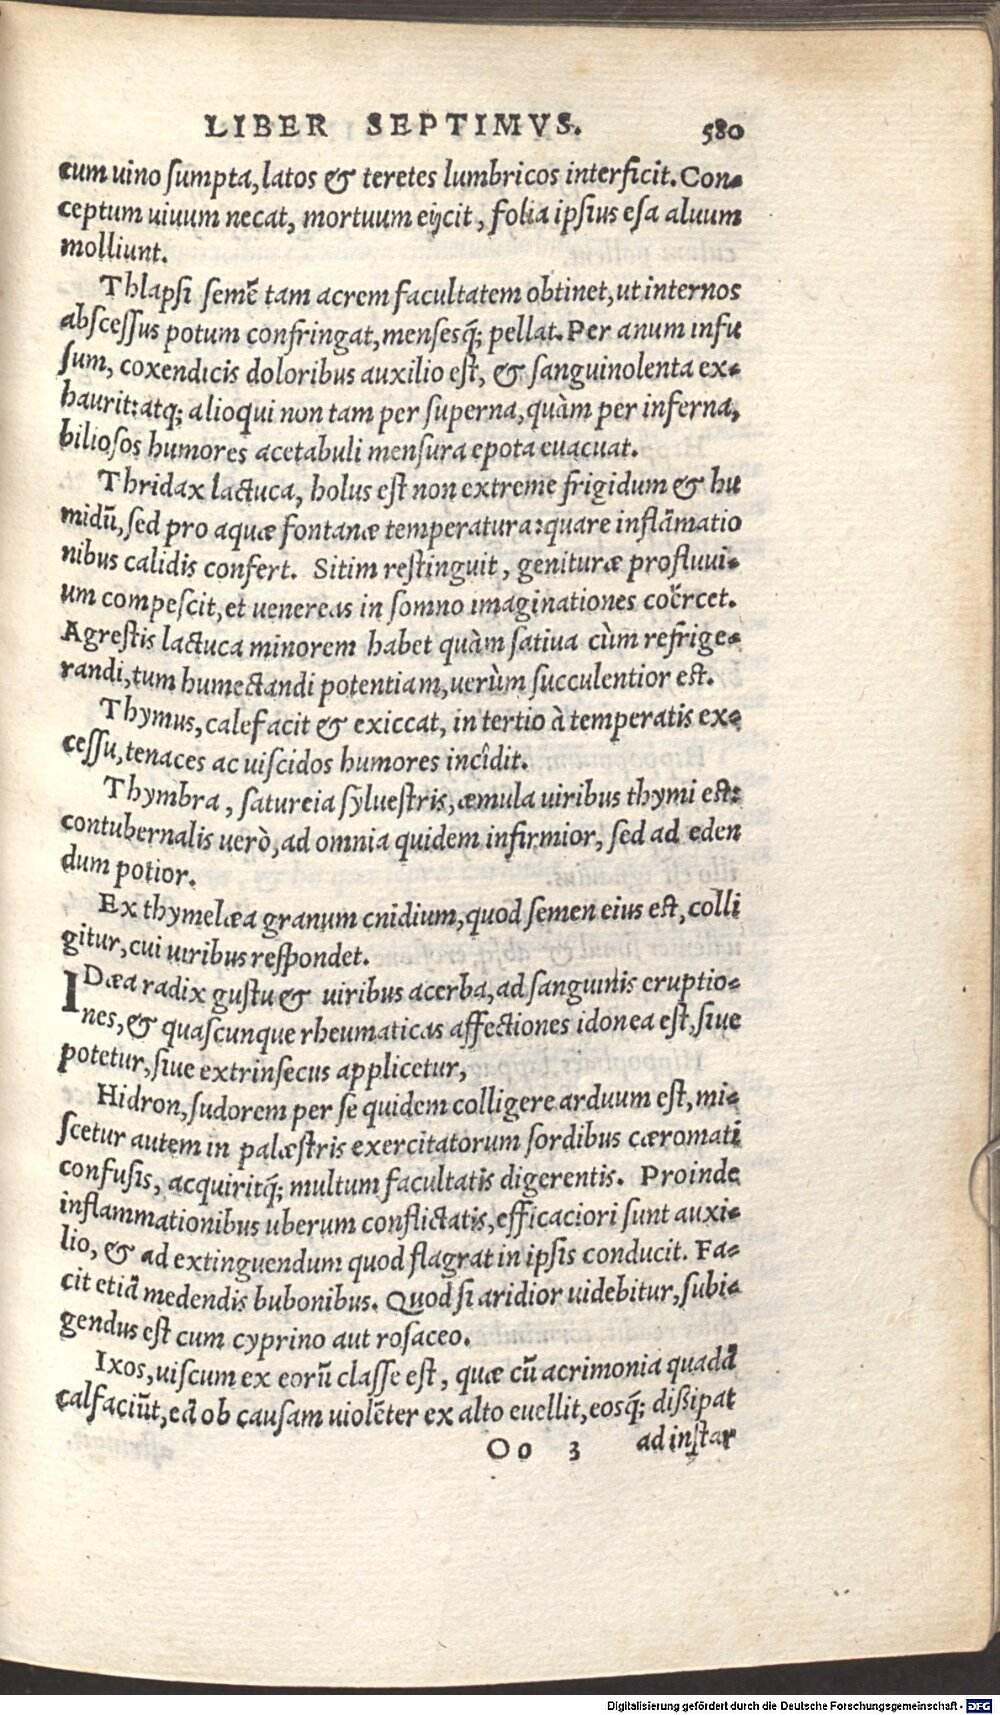 LIBER SEPTIMVS. 580
cum uino sumpta, latos & teretes lumbricos interficit. Con-
ceptum uiuum necat, mortuum eijcit, folia ipsius esa aluum
molliunt.
Thlapsi semẽ tam acrem facultatem obtinet, ut internos
abscessus potum confringat, mensesq́; pellat. Per anum infu
sum, coxendicis doloribus auxilio est, & sanguinolenta ex-
haurit: atq; alioqui non tam per superna, quàm per inferna,
biliosos humores acetabuli mensura epota euacuat.
Thridax lactuca, holus est non extreme frigidum & hu
midũ, sed pro aquæ fontanæ temperatura: quare inflãmatio
nibus calidis confert. Sitim restinguit, genituræ profluui-
um compescit, et uenereas in somno imaginationes coërcet.
Agrestis lactuca minorem habet quàm satiua cùm refrige-
randi, tum humectandi potentiam, uerùm succulentior est.
Thymus, calefacit & exiccat, in tertio à temperatis ex-
cessu, tenaces ac uiscidos humores incîdit.
Thymbra, satureia syluestris, æmula uiribus thymi est:
contubernalis uerò, ad omnia quidem infirmior, sed ad eden
dum potior.
Ex thymelæa granum cnidium, quod semen eius est, colli
gitur, cui uiribus respondet.
IDæa radix gustu & uiribus acerba, ad sanguinis eruptio-
nes, & quascunque rheumaticas affectiones idonea est, siue
potetur, siue extrinsecus applicetur,
Hidron, sudorem per se quidem colligere arduum est, mi-
scetur autem in palæstris exercitatorum sordibus cæromati
confusis, acquiritq́; multum facultatis digerentis. Proinde
inflammationibus uberum conflictatis, efficaciori sunt auxi-
lio, & ad extinguendum quod flagrat in ipsis conducit. Fa-
cit etiã medendis bubonibus. Quod si aridior uidebitur, subi-
gendus est cum cyprino aut rosaceo.
Ixos, uiscum ex eorũ classe est, quæ cũ acrimonia quadã
calfaciũt, eã ob causam uiolẽter ex alto euellit, eosq́; dissipat
Oo 3 ad instar
Digitalisierung gefördert durch die Deutsche Forschungsgemeinschaft - DFG